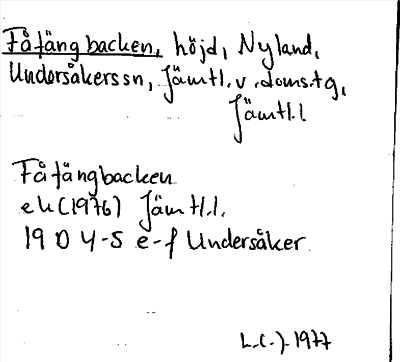 Fåfängbacken, höjd, Nyland,
Undersåkers sn, Jämtl. v. doms.tg,
Jämtl.l
Fåfängbacken
ek (1976) Jämtl.l.
19 D 4-5 e-f Undersåker
L.C.J. 1977